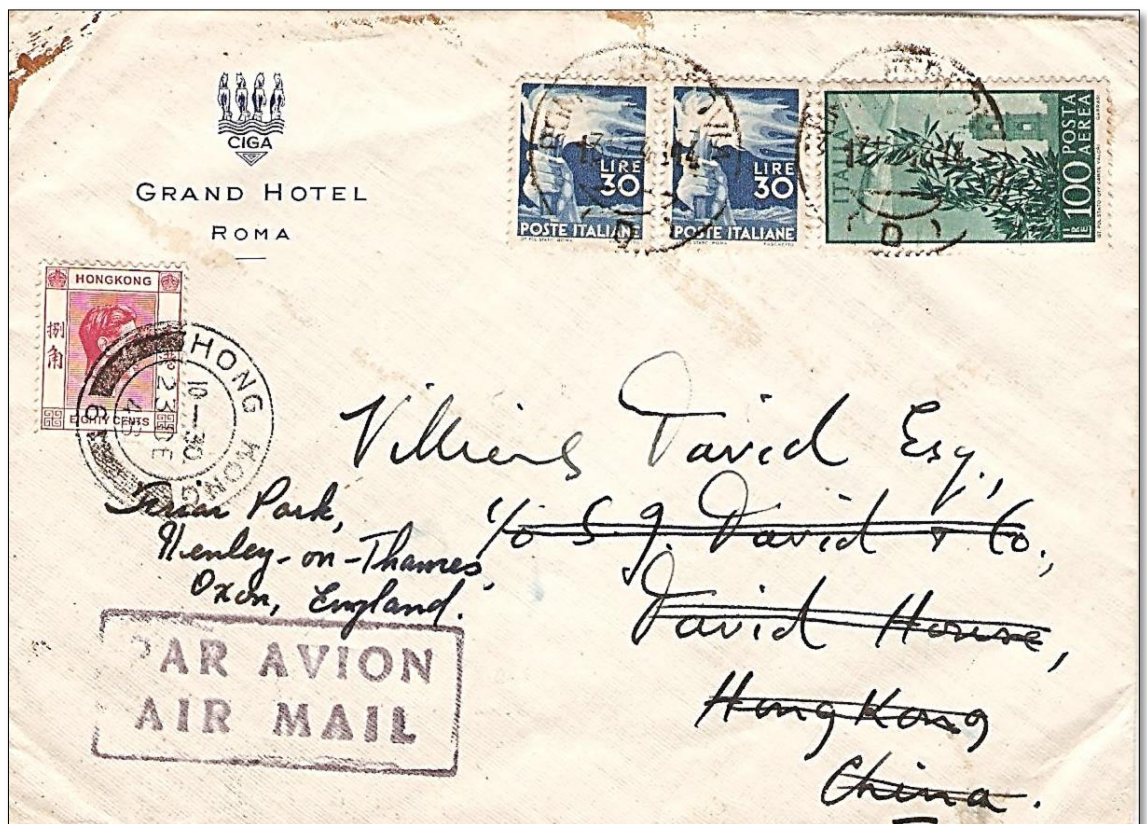 CIGA
GRAND HOTEL
ROMA
LIRE
30
POSTE ITALIANE
LIRE
30
POSTE ITALIANE
ITALIA
LIRE 100 POSTA AEREA
D
D
HONGKONG
捌角
EIGHTY CENTS
HONG KONG
10—30
23 DE
Villiers David Esq.,
c/o S. J. David & Co.,
David House,
Hong Kong
China.
Friar Park,
Henley-on-Thames,
Oxon, England.
PAR AVION
AIR MAIL